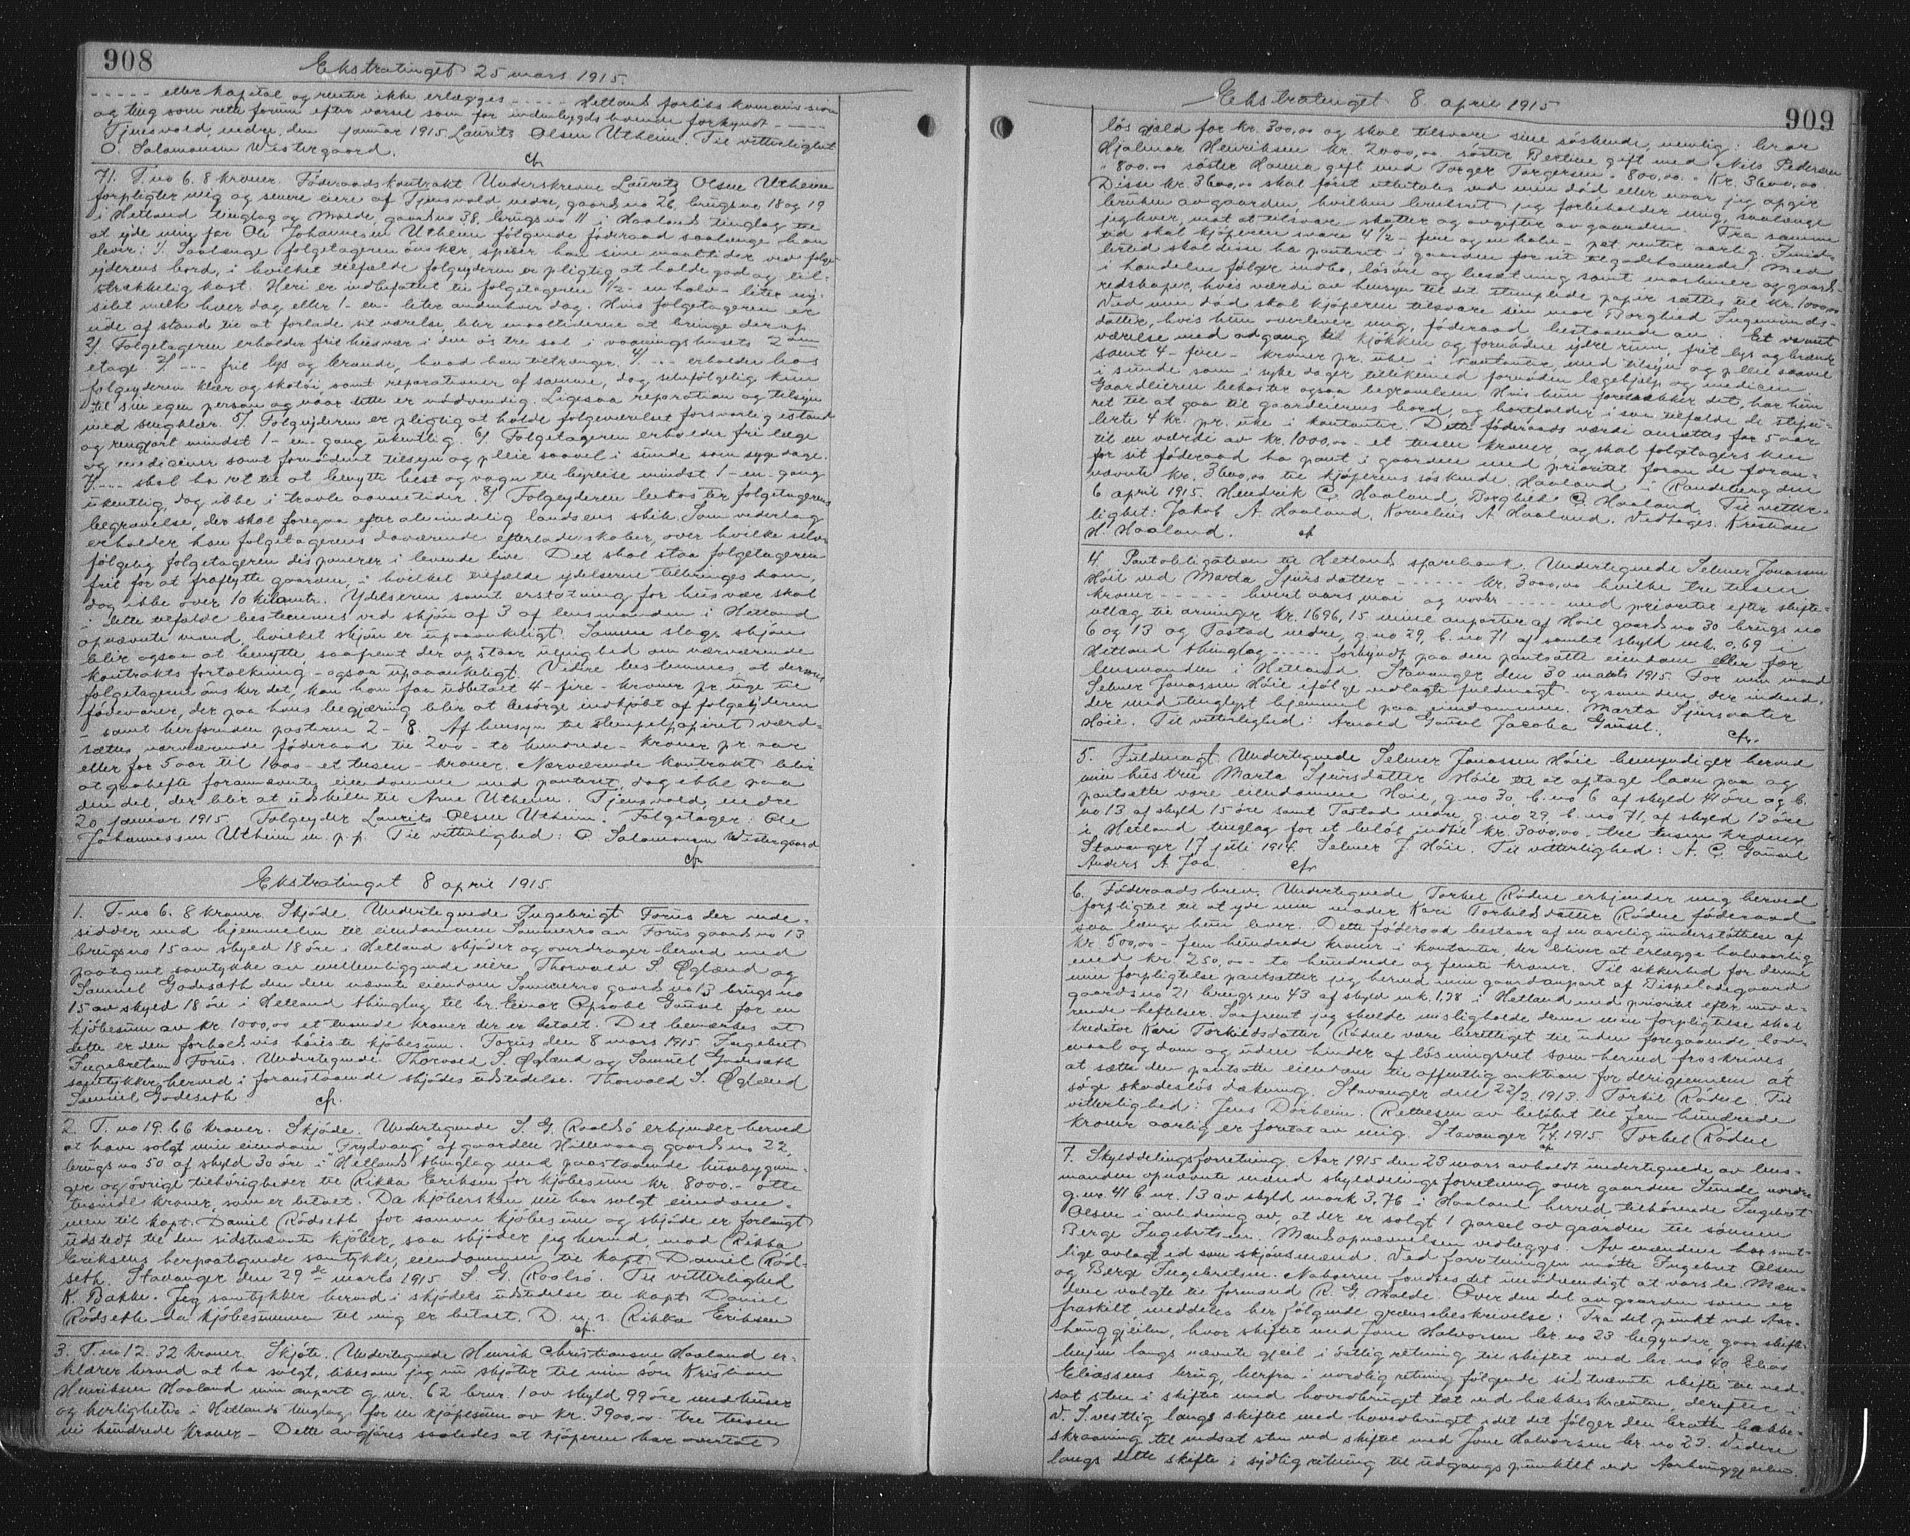 908
Ekstratinget 25 mars 1915
----- eller kapital og renter ikke erlægges ----- Hetland forlikskommission
og ting som rette forum efter varsel som for indenbygds boende forkyndt -----
Tjensvold, nedre, den januar 1915 Laurits Olsen Utheim. Til vitterlighet
O. Salamonsen Westergaard.
71. T. no 6. 8 kroner. Føderaadskontrakt Underskrevne Lauritz Olsen Utheim
forpligter mig og senere eiere af Tjensvold nedre, gaards no 26, brugs no 18 og 19
i Hetland tinglag og Molde, gaards no 38, brugs no 11 i Haaland tinglag til
at yde min far Ole Johannesen Utheim følgende føderaad saalænge han
lever: 1/ Saalænge folgetageren ønsker, spiser han sine maaltider ved folge-
yderens bord, i hvilket tilfælde folgeyderen er pligtig at holde god og til-
strækkelig kost. Heri er indbefattet til folgetageren 1/2 - en halv - liter ny-
silet melk hver dag eller 1 - en - liter andenhver dag. Hvis folgetageren er
ude af stand til at forlade sit værelse, blir maaltiderne at bringe derop
2/ Folgetageren erholder frit husvær i den østre sal i vaaningshusets 2den
etage. 3/ --- frit lys og brænde, hvad han vil trænger. 4/ --- erholder hos
folgeyderen klær og skotøi samt reparationer af samme, dog selvfølgelig kun
til sin egen person og naar dette er nødvendig. Ligesaa reparation og tilsyn
med sengklær. 5/ Folgeyderen er pligtig at holde folgeværelset forsvarlig istand
og rengjort mindst 1 - en - gang ukentlig. 6/ Folgetageren erholder fri læge
og mediciner samt fornødent tilsyn og pleie saavel i sunde som syge dage.
7/ --- skal ha ret til at benytte hest og vogn til kjøreise mindst 1 - en - gang
ukentlig, dog ikke i travle aannetider. 8/ Folgeyderen bekoster folgetagerens
begravelse, der skal foregaa efter almindelig landsens skik. Som vederlag
erholder han folgetagerens daværende efterladenskaber, over hvilke selv-
følgelig folgetageren disponerer i levende live. Det skal staa folgetageren
frit for at fraflytte gaarden, i hvilket tilfælde ydelserne tilbringes ham,
dog ikke over 10 kilomtr. Ydelserne samt erstatning for husvær skal
i dette tilfælde bestemmes ved skjøn af 3 af lensmanden i Hetland
opnævnte mænd, hvilket skjøn er upaaankeligt. Samme slags skjøn
blir ogsaa at benytte, saafremt der opstaar uenighed om nærværende
kontrakts fortolkning - ogsaa upaaankeligt. Videre bestemmes, at dersom
folgetageren ønsker det, kan han faa udbetalt 4 - fire - kroner pr uge til
fødevarer, der paa hans begjæring blir at besørge indkjøbt af folgeyderen
- samt herforuden posterne 2 - 8. Af hensyn til stempelpapiret værd-
sættes nærværende føderaad til 200 - to hundrede - kroner pr aar
eller for 5 aar til 1000 - et tusen - kroner. Nærværende kontrakt blir
at paahefte forannævnte eiendomme med panteret, dog ikke paa
den del, der blir at udskille til Arne Utheim. Tjensvold, nedre
20 januar 1915. Folgeyder Laurits Olsen Utheim. Folgetager: Ole
Johannessen Utheim m. p. p. Til vitterlighed: O. Salamonsen Westergaard
Ekstratinget 8 april 1915.
1. T. no 6. 8 kroner. Skjøde. Undertegnede Ingebrigt Forus der inde-
sidder med hjemmelen til eiendommen Sommerro av Forus gaards no 13
brugs no 15 av skyld 18 øre i Hetland skjøder og overdrager herved med
paategnet samtykke av mellemliggende eiere Thorvald S. Øglænd og
Samuel Godeseth den den nævnte eiendom Sommerro gaards no 13 brugs no
15 av skyld 18 øre i Hetland thinglag til hr. Einar Opsahl Gausel for en
kjøbesum av kr. 1000,00 et tusinde kroner der er betalt. Det bemærkes at
dette er den forholdsvis høieste kjøbesum. Forus den 8 mars 1915. Ingebret
Ingebretsen Forus. Undertegnede Thorvald S. Øglænd og Samuel Godeseth
samtykker herved i foranstaaende skjødes utstedelse. Thorvald S. Øglænd
Samuel Godeseth.
2. T. no 19. 66 kroner. Skjøde. Undertegnede S. G. Roalsø erkjender herved
at have solgt min eiendom "Frydvang" af gaarden Hillevaag gaards no 22,
brugs no 50 af skyld 30 øre i Hetland thinglag med paastaaende husebygnin-
ger og øvrige tilhørigheder til Rikka Eriksen for kjøbesum kr. 8000.- otte
tusinde kroner, som er betalt. Da kjøbersken nu har solgt eiendom-
men til kapt. Daniel Rødseth for samme kjøbesum og skjøde er forlangt
udstedt til den sidstnævnte kjøber, saa skjøder jeg herved med Rikka
Eriksens herpaategnede samtykke, eiendommen til kapt Daniel Rød-
seth. Stavanger den 29de marts 1915 S. G. Roalsø. Til vitterlighed
K. Bakke. Jeg samtykker herved i skjødets udstedelse til kapt. Daniel
Rødseth da kjøbesummen til mig er betalt. D. u. s. Rikka Eriksen
3. T. no 12. 32 kroner. Skjøte. Undertegnede Henrik Christiansen Haaland er-
klærer herved at ha solgt, likesom jeg nu skjøter til min søn Kristian
Henriksen Haaland min anpart g. nr. 62 br.nr. 1 av skyld 99 øre med huser
og herligheter i Hetlands tinglag for en kjøpesum av kr. 3900,00 - tre tusen
ni hundrede kroner - Dette avgjøres saaledes at kjøperen har overtat
909
Ekstratinget 8 april 1915
løs gjæld for kr. 300,00 og skal tilsvare sine søskende, nemlig: bror
Hjalmar Henriksen kr. 2000,00 søster Bertine gift med Nils Pedersen
" 800,00 søster Hanna gift med Torger Torgersen " 800,00 " Kr. 3600,00
Disse kr. 3600,00 skal først utbetales ved min død eller naar jeg opgir
bruken av gaarden, hvilken bruksret jeg forbeholder mig, saalænge
jeg lever, mot at tilsvare skatter og avgifter av gaarden. Fra samme
tid skal kjøperen svare 4 1/2 - fire og en halv - pct renter aarlig. Imid-
lertid skal disse ha panteret i gaarden for sit tilgodehavende. Med
i handelen følger indbo, løsøre og besætning samt maskiner og gaards-
redskaper, hvis værdi av hensyn til det stemplede papir sættes til kr. 1000,00
Ved min død skal kjøperen tilsvare sin mor Borghild Ingemunds-
datter, hvis hun overlever mig, føderaad bestaaende av: Et varmt
værelse med adgang til kjøkken og fornødne ydre rum, frit lys og brænde
samt 4 - fire - kroner pr. uke i kontanter, med tilsyn og pleie saavel
i sunde som i syke dager tillikemed fornøden lægehjælp og medicin
Gaardeieren bekoster ogsaa begravelsen. Hvis hun foretrækker det, har hun
ret til at gaa til gaardeierens bord, og bortfalder i saa tilfælde de stipu-
lerte 4 kr. pr. uke i kontanter. Dette føderaads værdi ansættes for 5 aar
til en værdi av kr. 1000,00 - et tusen kroner, og skal folgetagersken
for sit føderaad ha pant i gaarden med prioritet foran de foran-
nævnte kr. 3600,00 til kjøperens søskende. Haaland i Randeberg den
6 april 1915. Hendrik C. Haaland, Borghild C. Haaland. Til vitter-
lighet: Jakob A. Haaland, Kornelius A. Haaland. Vedtages. Kristian
H. Haaland.
4. Pantobligation til Hetland sparebank. Undertegnede Selmer Jonassen
Høie ved Marta Sjursdatter ------ kr. 3000,00 hvilke tre tusen
kroner ----- hvert aars mai og novbr ----- med prioritet efter skifte-
utlæg til arvinger kr. 1696,15 mine anparter af Høie gaards no 30 brugs no
6 og 13 og Tastad nedre, g. no 29, b. no 71 af samlet skyld mk. 0,69 i
Hetland thinglag ----- forkyndt paa den pantsatte eiendom eller for
lensmanden i Hetland. Stavanger den 30 marts 1915. For min mand
Selmer Jonassen Høie ifølge vedlagte fuldmagt og som den, der indesid-
der med tinglyst hjemmel paa eiendommen. Marta Sjursdatter
Høie. Til vitterlighed: Arnold Gausel Jacoba Gausel.
5. Fuldmagt. Undertegnede Selmer Jonassen Høie bemyndiger herved
min hustru Marta Sjursdatter Høie til at optage laan paa og
pantsætte vore eiendomme Høie, g. no 30, b. no 6 af skyld 41 øre og b.
no 13 af skyld 15 øre samt Tastad nedre, g. no 29, b. no 71, af skyld 13 øre
i Hetland tinglag for et beløb indtil kr. 3000,00 - tre tusen kroner
Stavanger 17 juli 1914. Selmer J. Høie. Til vitterlighed: A. G. Gausel
Anders A. Jaa.
6. Føderaadsbrev. Undertegnede Torkel Rødne erkjender mig herved
forpligtet til at yde min moder Kari Torkildsdatter Rødne føderaad
saa længe hun lever. Dette føderaad bestaar af en aarlig understøttelse af
kr. 500,00 - fem hundrede kroner i kontanter, der bliver at erlægge halvaarlig
med kr. 250,00 - to hundrede og femti kroner. Til sikkerhed for denne
min forpligtelse pantsætter jeg herved min gaardanpart af Bispeladegaard
gaards no 21 brugs no 43 af skyld mk. 1,98 i Hetland med prioritet efter nuvæ-
rende heftelser. Saafremt jeg skulde misligholde denne min forpligtelse skal
kreditor Kari Torkildsdatter Rødne være berettiget til uden foregaaende lov-
maal og dom og uden hinder af løsningsret som herved fraskrives
at sætte den pantsatte eiendom til offentlig auktion for derigjennem at
søge skadesløs dækning. Stavanger den 22/2 1913. Torkil Rødne. Til
vitterlighed: Jens Dørheim. Rettelsen av beløbet til fem hundrede
kroner aarlig er foretat av mig. Stavanger 7/4 1915. Torkel Rødne
7. Skylddelingsforretning. Aar 1915 den 23 mars avholdt undertegnede av lens-
manden opnævnte mænd skylddelingsforretning over gaarden Sunde, nordre
g. nr. 41 b. nr. 13 av skyld mark 3,76 i Haaland herred tilhørende Ingebret
Olsen i anledning av at der er solgt 1 parsel av gaarden til sønnen
Berge Ingebretsen. Mandsopnævnelsen vedlegges. Av mændene har samt-
lige avlagt ed som skjønsmænd. Ved forretningen møtte Ingebret Olsen
og Berge Ingebretsen. Naboerne fandtes det unødvendigt at varsle. Mæn-
dene valgte til formand R. G. Molde. Over den del av gaarden som er
fraskilt meddeles her følgende grænsebeskrivelse: Fra det punkt ved Aar-
hauggjeilen, hvor skiftet med Jone Halvorsen br. no 23 begynder gaar skifte-
linjen langs nævnte gjeil i østlig retning til skiftet med br. no 40, Elias
Eliassens brug, herfra i nordlig retning følgende sidstnævnte skifte til ned-
sat sten i skiftet med hovedbruget tæt ved bækkeskrænten, derefter i
v. S. vestlig langs skiftet med hovedbruget, idet det følger den bratte bakke-
skraaning til nedsat sten ved skiftet med Jone Halvorsen br. no 23. Videre
langs dette skifte i sydlig retning til udgangspunktet ved Aarhauggjeilen.